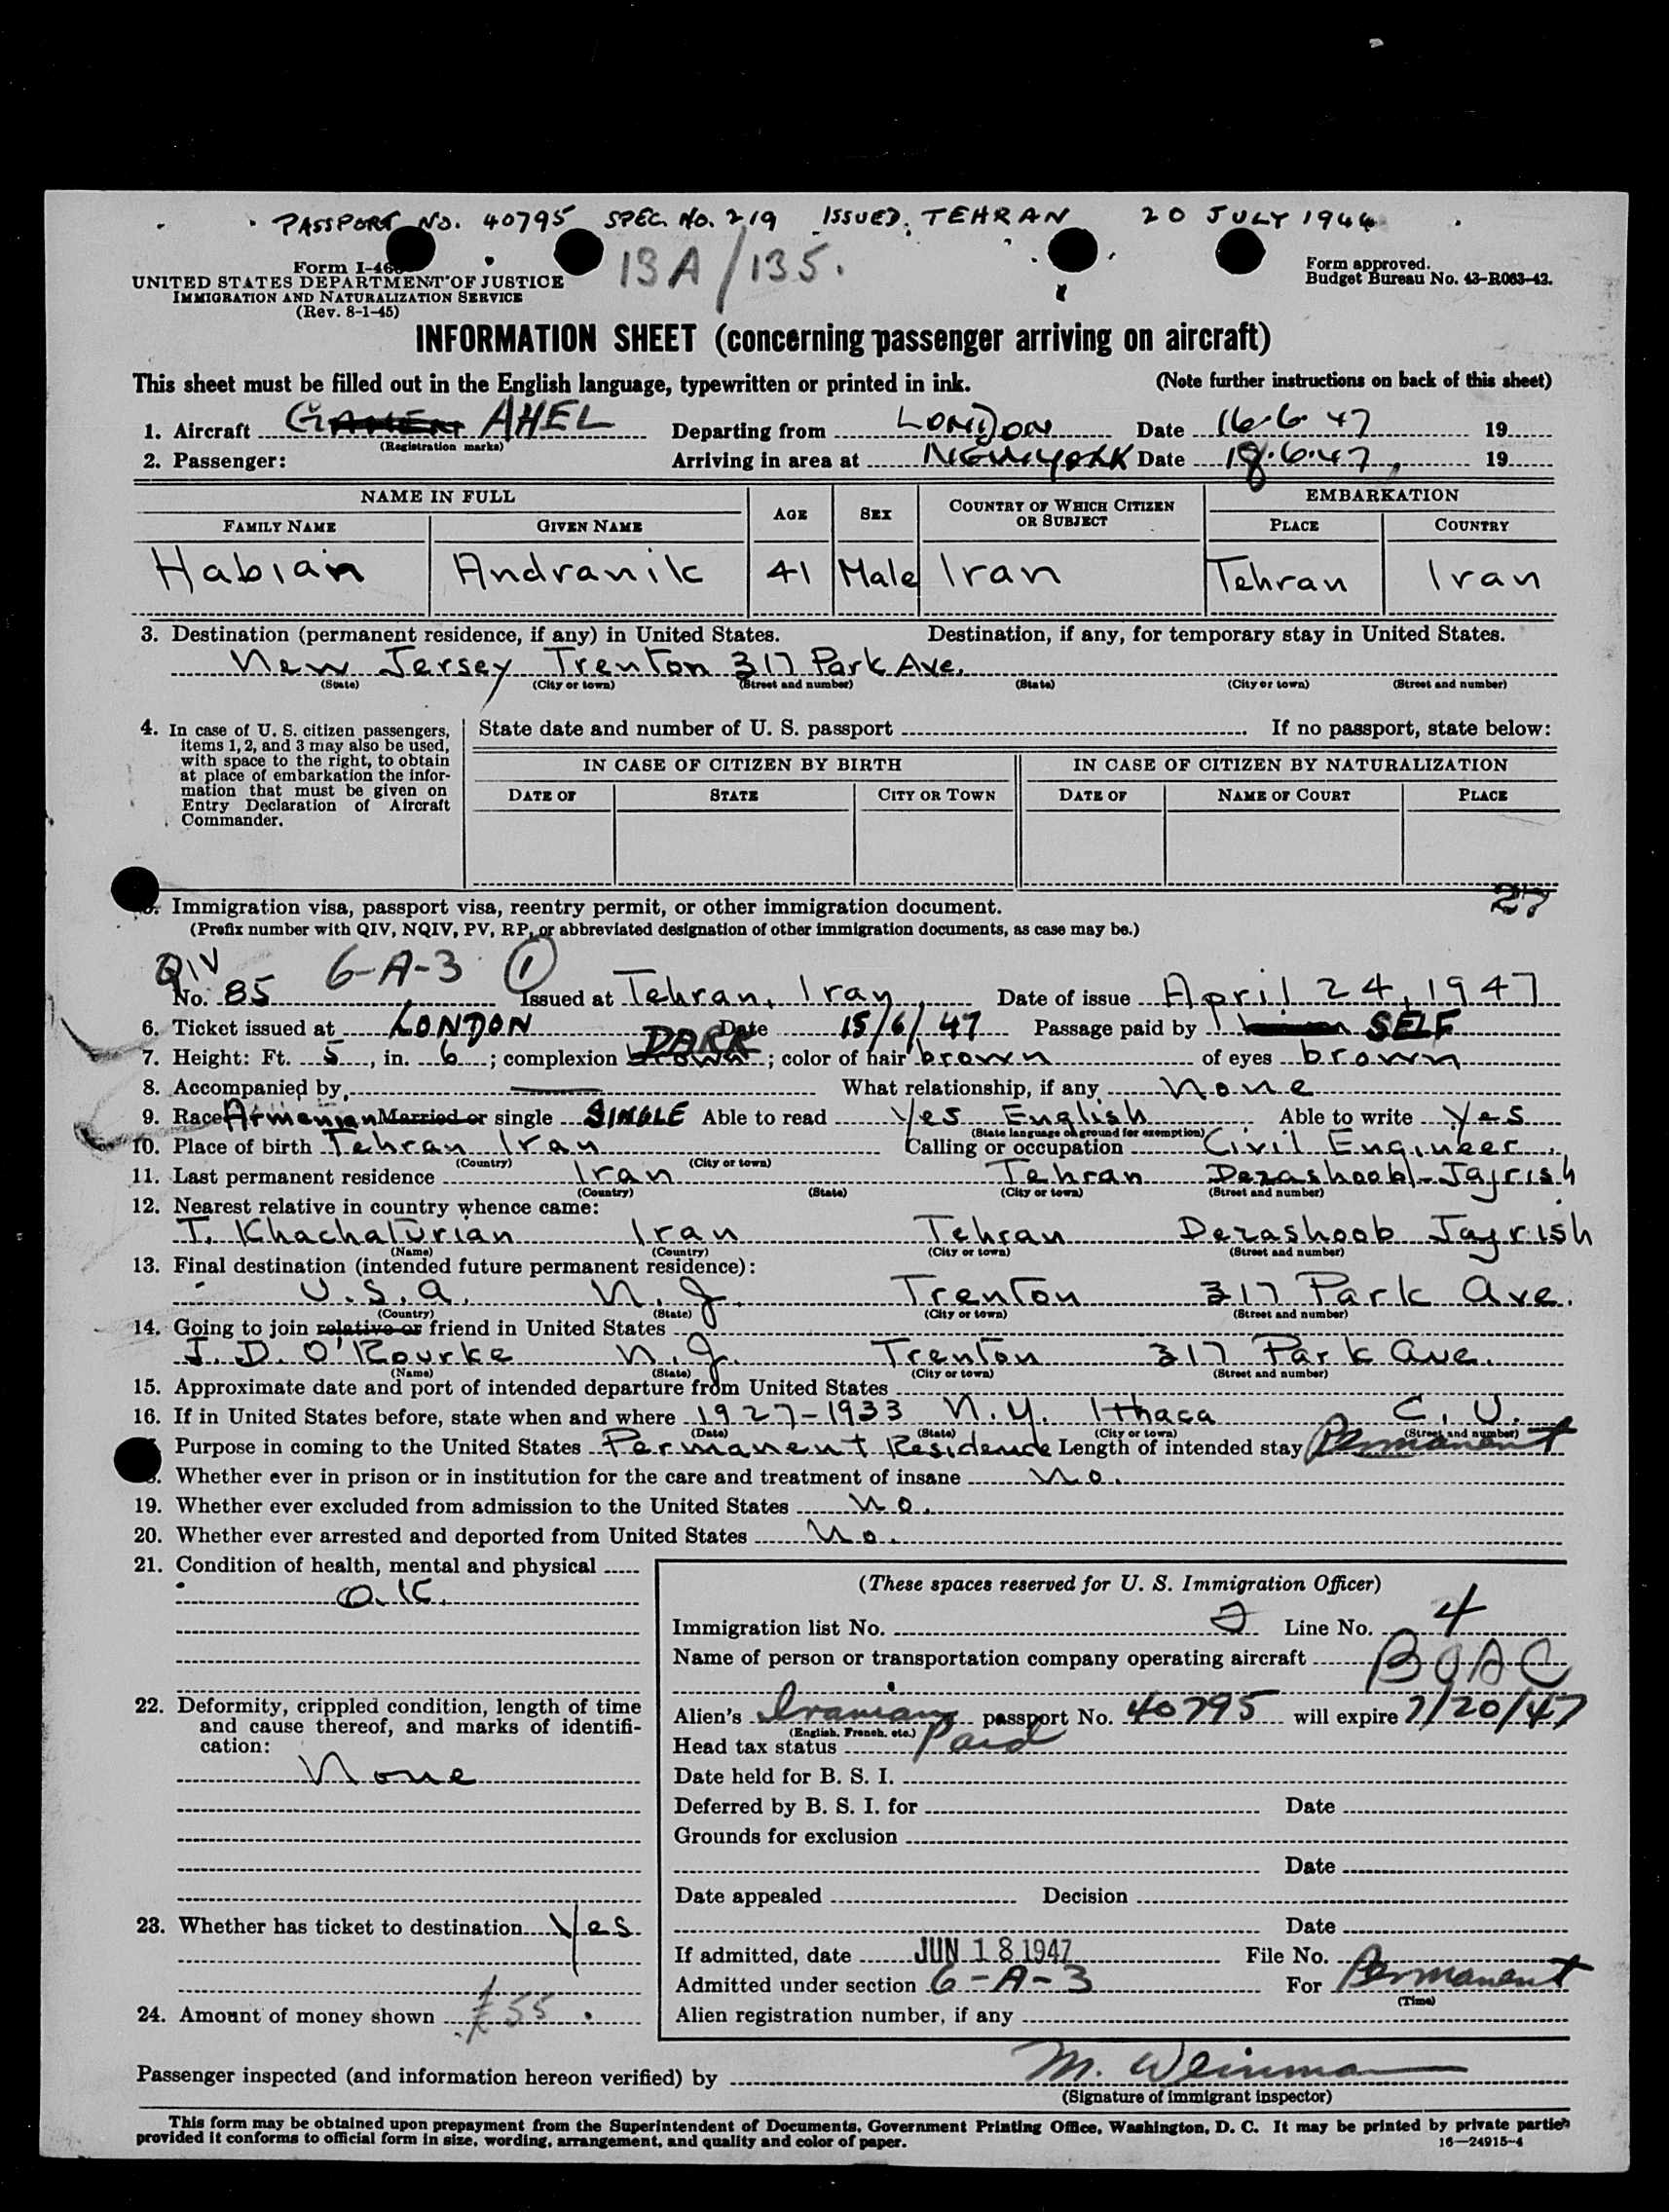 PASSPORT NO. 40795 SPEC. No. 219 ISSUED, TEHRAN 20 JULY 1944
13A/135.
Form I-466
UNITED STATES DEPARTMENT OF JUSTICE
IMMIGRATION AND NATURALIZATION SERVICE
(Rev. 8-1-45)
Form approved.
Budget Bureau No. 43-R063-42.
INFORMATION SHEET (concerning passenger arriving on aircraft)
This sheet must be filled out in the English language, typewritten or printed in ink. (Note further instructions on back of this sheet)
1. Aircraft G AHEL Departing from LONDON Date 16.6.47 19
(Registration marks)
2. Passenger: Arriving in area at NEW YORK Date 18.6.47, 19
NAME IN FULL AGE SEX COUNTRY OF WHICH CITIZEN OR SUBJECT EMBARKATION
FAMILY NAME GIVEN NAME PLACE COUNTRY
Habian Andranik 41 Male Iran Tehran Iran
3. Destination (permanent residence, if any) in United States. Destination, if any, for temporary stay in United States.
New Jersey Trenton 317 Park Ave.
(State) (City or town) (Street and number) (State) (City or town) (Street and number)
4. In case of U. S. citizen passengers, items 1, 2, and 3 may also be used, with space to the right, to obtain at place of embarkation the information that must be given on Entry Declaration of Aircraft Commander.
State date and number of U. S. passport If no passport, state below:
IN CASE OF CITIZEN BY BIRTH IN CASE OF CITIZEN BY NATURALIZATION
DATE OF STATE CITY OR TOWN DATE OF NAME OF COURT PLACE
27
Immigration visa, passport visa, reentry permit, or other immigration document.
(Prefix number with QIV, NQIV, PV, RP, or abbreviated designation of other immigration documents, as case may be.)
QIV 6-A-3 1
No. 85 Issued at Tehran, Iran Date of issue April 24, 1947
6. Ticket issued at LONDON Date 15/6/47 Passage paid by SELF
7. Height: Ft. 5, in. 6; complexion brown DARK; color of hair brown of eyes brown
8. Accompanied by, What relationship, if any, None
9. Race Armenian Married or single SINGLE Able to read Yes English Able to write Yes
(State language or ground for exemption)
10. Place of birth Tehran Iran Calling or occupation Civil Engineer
(Country) (City or town)
11. Last permanent residence Iran Tehran Dezashoob-Jajrish
(Country) (State) (City or town) (Street and number)
12. Nearest relative in country whence came:
T. Khachaturian Iran Tehran Dezashoob Jajrish
(Name) (Country) (City or town) (Street and number)
13. Final destination (intended future permanent residence):
U.S.A. N.J. Trenton 317 Park Ave.
(Country) (State) (City or town) (Street and number)
14. Going to join relative or friend in United States
J. D. O'Rourke N.J. Trenton 317 Park Ave.
(Name) (State) (City or town) (Street and number)
15. Approximate date and port of intended departure from United States
16. If in United States before, state when and where 1927-1933 N.Y. Ithaca C. U.
(Date) (State) (City or town) (Street and number)
Purpose in coming to the United States Permanent Residence Length of intended stay Permanent
Whether ever in prison or in institution for the care and treatment of insane No.
19. Whether ever excluded from admission to the United States No.
20. Whether ever arrested and deported from United States No.
21. Condition of health, mental and physical
O.K.
22. Deformity, crippled condition, length of time and cause thereof, and marks of identification:
None
23. Whether has ticket to destination Yes
24. Amount of money shown £55.
(These spaces reserved for U. S. Immigration Officer)
Immigration list No. 2 Line No. 4
Name of person or transportation company operating aircraft BOAC
Alien's Iranian passport No. 40795 will expire 7/20/47
(English, French, etc.)
Head tax status Paid
Date held for B. S. I.
Deferred by B. S. I. for Date
Grounds for exclusion
Date
Date appealed Decision
Date
If admitted, date JUN 18 1947 File No.
Admitted under section 6-A-3 For Permanent
(Time)
Alien registration number, if any
Passenger inspected (and information hereon verified) by M. Weinman
(Signature of immigrant inspector)
This form may be obtained upon prepayment from the Superintendent of Documents, Government Printing Office, Washington, D. C. It may be printed by private parties
provided it conforms to official form in size, wording, arrangement, and quality and color of paper.
16—24915-4